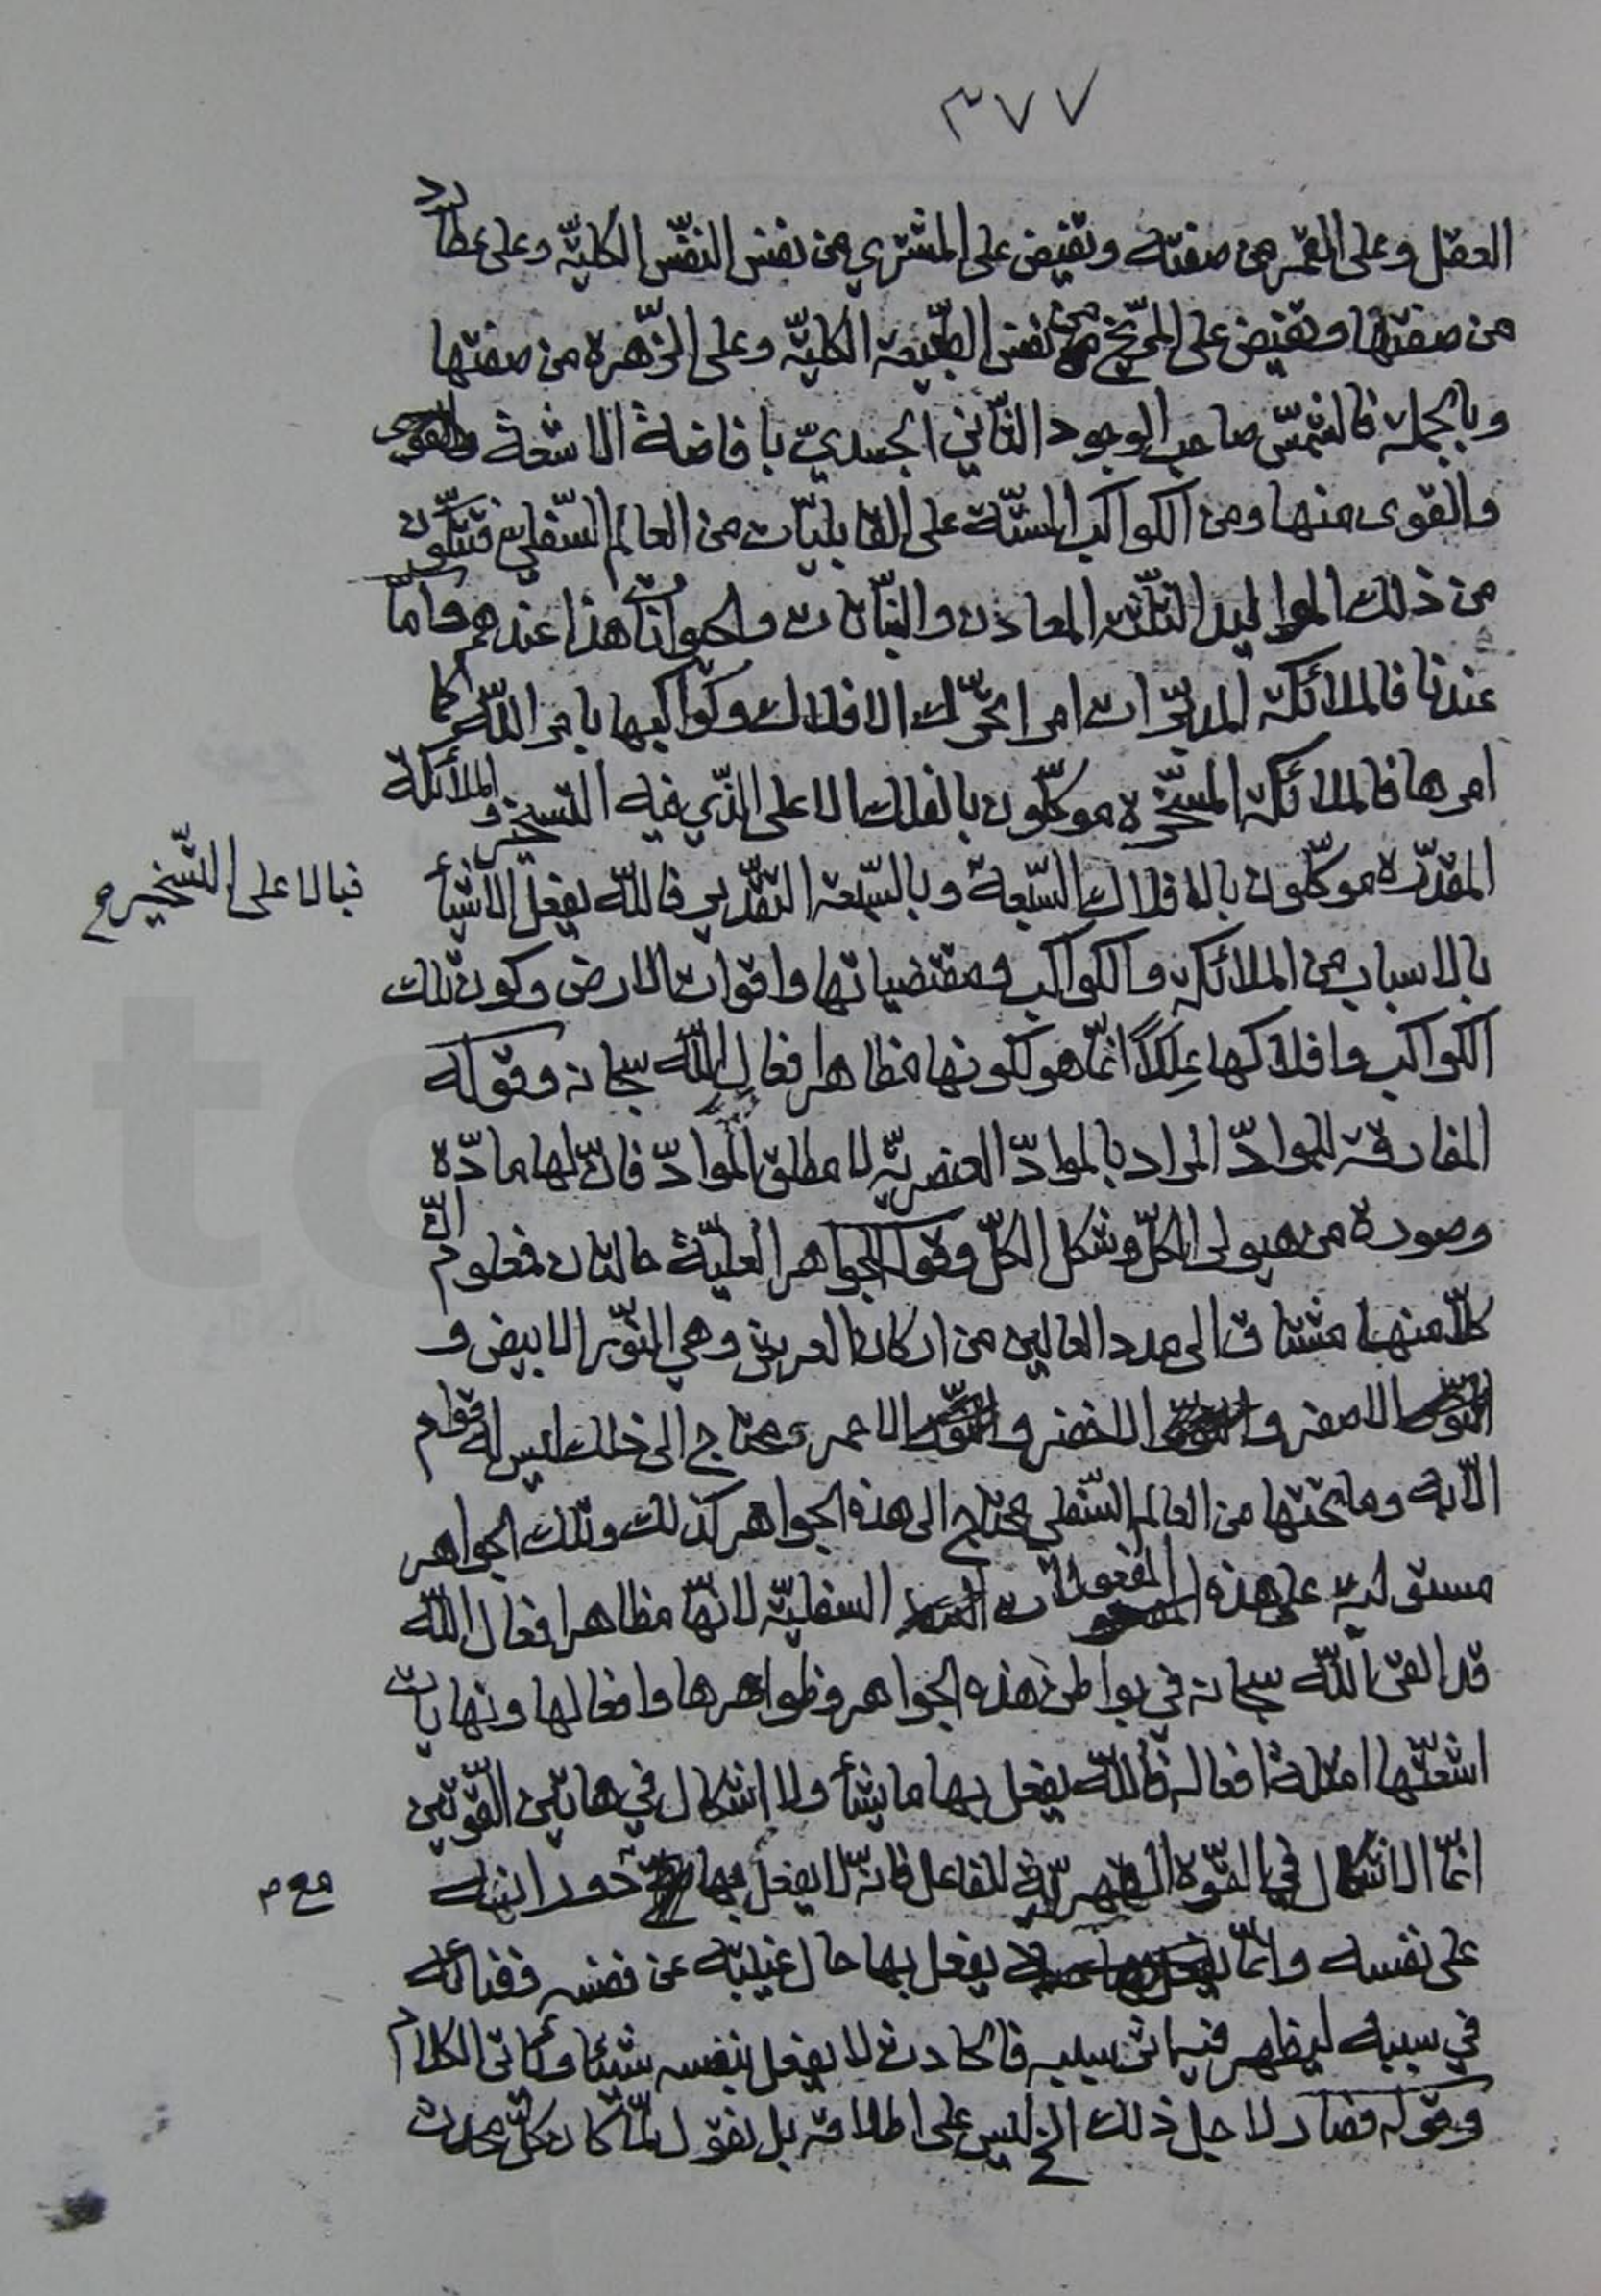 ٣٧٧
العقل وعلى القمر من صفته وتفيض على المشتري من نفس النفس الكليّة وعلى عطارد
من صفتها وتفيض على المرّيخ من نفس الطّبيعة الكليّة وعلى الزّهرة من صفتها
وبالجملة فالشمس صاحب الوجود الثّاني الجسديّ بافاضة الاشعة
والقوى منها ومن الكواكب الستّة على القابليّات من العالم السّفليّ فتتكوّن
من ذلك المواليد الثلثة المعادن والنّباتات والحيوانات هذا عندهم وامّا
عندنا فالملائكة المدبّرات امرا تحرّك الافلاك وكواكبها بامر اللّه كما
امرها فالملائكة المسخّرة موكّلون بالفلك الاعلى الذّي فيه التسخير والملائكة
المقدّرة موكّلون بالافلاك السّبعة وبالسّبعة التقدير فاللّه يفعل الاشيأ
فبالاعلى التّسخير
بالاسباب من الملائكة والكواكب ومقتضياتها واقوات الارض وكون تلك
الكواكب وافلاكها عِلَلاً انّما هو لكونها مظاهر افعال اللّه سبحانه وقوله
المفارقة للموادّ المراد بالموادّ العنصريّة لا مطلق الموادّ فانّ لها مادّة
وصورة من هيولى الكلّ وشكل الكلّ وقوله الجواهر العليّة حالتان فمعلوم انّ
كلّا منها مشتاق الى مدد العالين من اركان العرش وهي النّور الابيض و
الاصفر و الاخضر و الاحمر محتاج الى ذلك ليس له قوام
الّا به وما تحتها من العالم السّفلي محتاج الى هذه الجواهر كذلك وتلك الجواهر
مستولية على هذه المفعولات السفليّة لانّها مظاهر افعال اللّه
قد القى اللّه سبحانه في بواطن هذه الجواهر وظواهرها وافعالها ونهايات
اشعّتها امثلة افعاله فاللّه يفعل بها ما يشأ ولا اشكال في هاتين القوّتين
انّما الاشكال في القوّة للفاعل فانّه لا يفعل بها حدود انيته
مع
على نفسه وانّما يفعل بها حال غيبته عن نفسه وفنائه
في سبيله ليظهر فيما فالحادث لا يفعل بنفسه شيئا ويأتي الكلام
وقوله فصار لاجل ذلك الخ ليس على اطلاقه بل نقول لمّا كان كلّ محدث